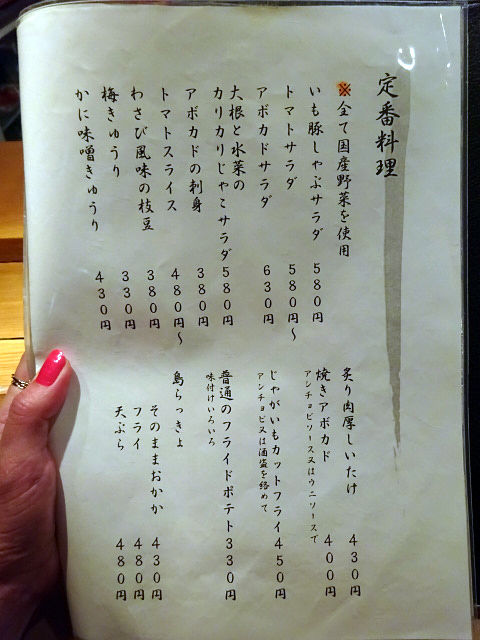 定番料理
※全て国産野菜を使用
いも豚しゃぶサラダ 580円
トマトサラダ 580円〜
アボカドサラダ 630円
大根と水菜の
カリカリじゃこサラダ 580円
アボカドの刺身 380円
トマトスライス 480円〜
わさび風味の枝豆 380円
梅きゅうり 330円
かに味噌きゅうり 430円
炙り肉厚しいたけ 430円
焼きアボカド 400円
アンチョビソース又はウニソースで
じゃがいもカットフライ 450円
アンチョビ又は酒盗を絡めて
普通のフライドポテト 330円
味付けいろいろ
島らっきょ
そのままおかか 430円
フライ 480円
天ぷら 480円